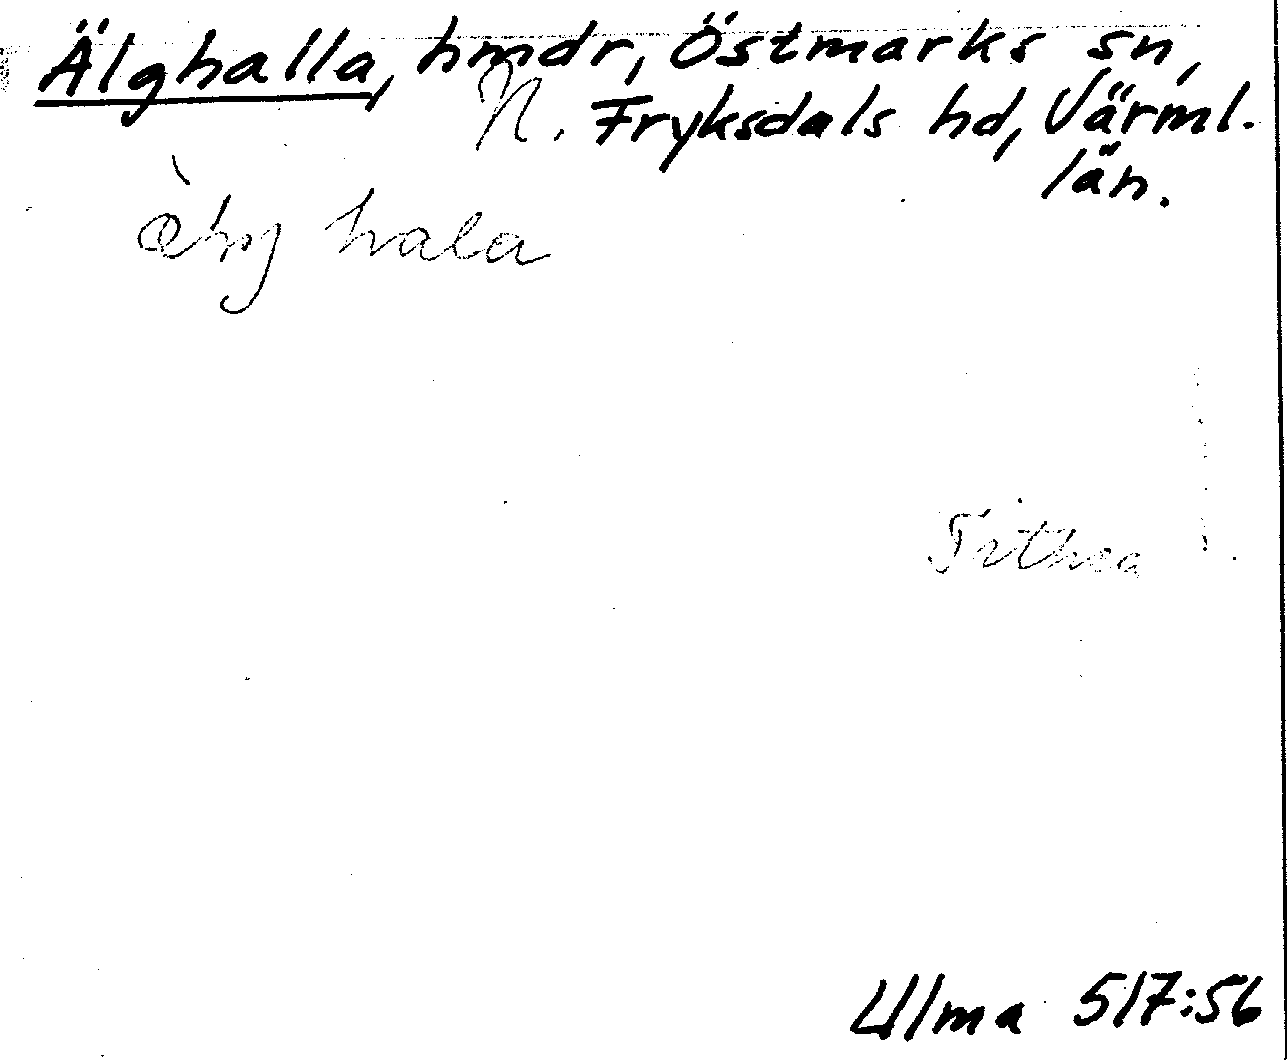 Älghalla, hmdr, Östmarks sn,
N. Fryksdals hd, Värml.
län.
hala
Ulma 517:56